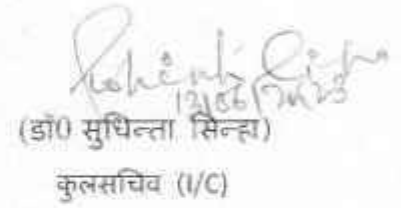 12/06/2023
(डॉ0 सुधिन्ता सिन्हा)
कुलसचिव (I/C)